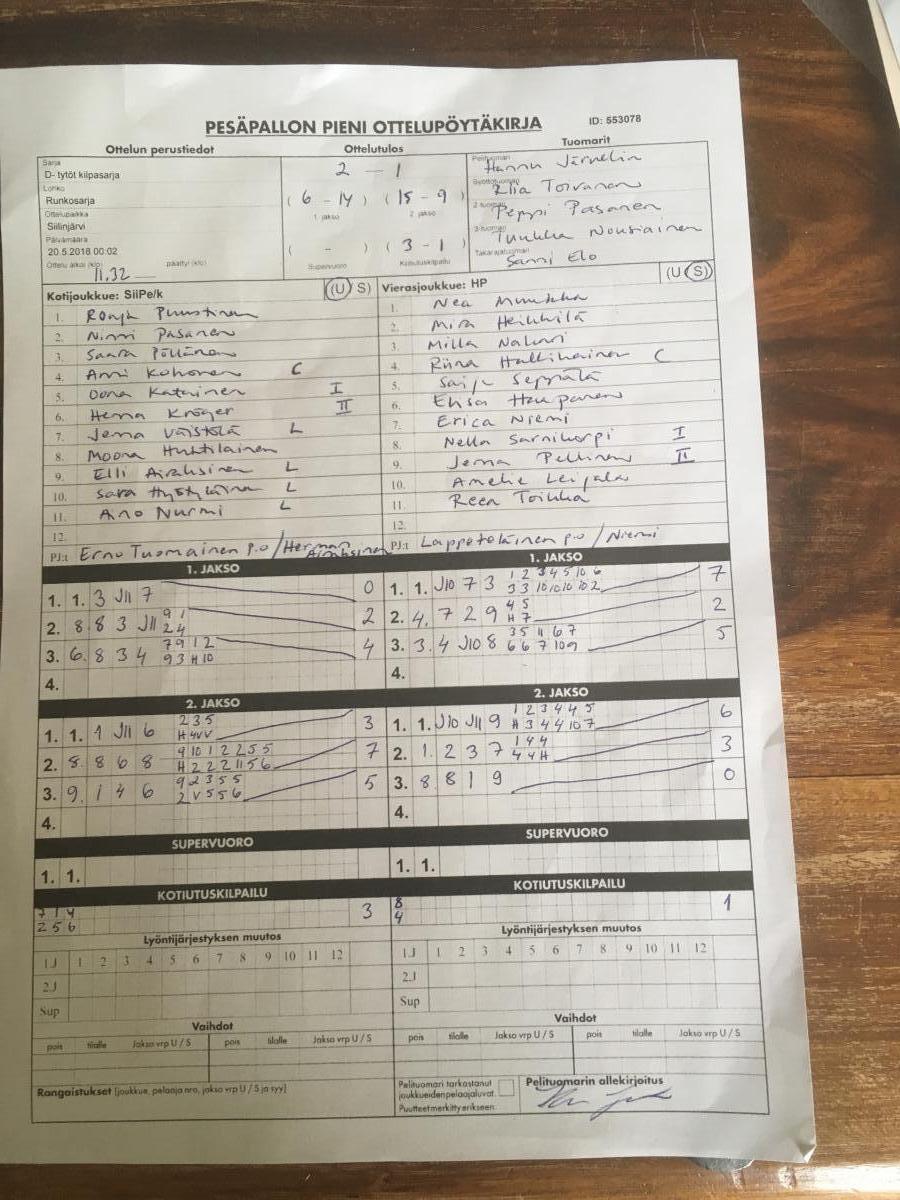 PESÄPALLON PIENI OTTELUPÖYTÄKIRJA ID: 553078
Ottelun perustiedot Ottelutulos Tuomarit
Sarja
D- tytöt kilpasarja
Lohko
Runkosarja
Ottelupaikka
Siilinjärvi
Päivämäärä
20.5.2018 00:02
Ottelu alkoi (klo) 11.32 päättyi (klo)
2 - 1
(6 - 14) (15 - 9)
1. jakso 2. jakso
( - ) (3 - 1)
Supervuoro Kotiutuskilpailu
Pelituomari Hannu Järvelin
Syöttötuomari Toivanen
2-tuomari Peppi Pasanen
3-tuomari Tuukka Nousiainen
Takarajatuomari Sanni Elo
Kotijoukkue: SiiPe/k (U S)
1. Ronja Puustinen
2. Ninni Pasanen
3. Saara Pöllänen
4. Anni Kohonen C
5. Oona Katainen I
6. Henna Kröger II
7. Jenna Väistölä L
8. Moona Huhtilainen
9. Elli Airaksinen L
10. Sara L
11. Aino Nurmi L
12.
PJ:t Erno Tuomainen p.o / Herman Airaksinen
Vierasjoukkue: HP (U S)
1. Nea
2. Mira Heikkilä
3. Milla
4. Riina C
5. Saija Seppälä
6.
7. Erica Niemi
8. Nella Sarnikorpi I
9. Jenna Pellinen II
10. Amelie Leijala
11. Reea Toikka
12.
PJ:t Lappeteläinen p.o / Niemi
1. JAKSO
1. 1. 3 J11 7 0
2. 8 8 3 J11 9 1 2
2 4
3. 6. 8 3 4 7 9 1 2 4
9 3 H 10
4.
1. JAKSO
1. 1. J10 7 3 1 2 3 4 5 10 6 7
3 3 10 10 10 10 2
2. 4. 7 2 9 4 5 2
H 7
3. 3. 4 J10 8 3 5 11 6 7 5
6 6 7 10 9
4.
2. JAKSO
1. 1. 1 J11 6 2 3 5 3
H 4 V V
2. 8. 8 6 8 9 10 1 2 2 5 5 7
H 2 2 2 11 5 6
3. 9. 1 4 6 9 2 3 5 5 5
2 V 5 5 6
4.
2. JAKSO
1. 1. J10 J11 9 1 2 3 4 4 5 6
H 3 4 4 10 7
2. 1. 2 3 7 1 4 4 3
4 4 H
3. 8. 8 1 9 0
4.
SUPERVUORO
1. 1.
SUPERVUORO
1. 1.
KOTIUTUSKILPAILU
7 1 4 3
2 5 6
KOTIUTUSKILPAILU
8 1
4
Lyöntijärjestyksen muutos
1.J 1 2 3 4 5 6 7 8 9 10 11 12
2.J
Sup
Lyöntijärjestyksen muutos
1.J 1 2 3 4 5 6 7 8 9 10 11 12
2.J
Sup
Vaihdot
pois tilalle Jakso vrp U / S pois tilalle Jakso vrp U / S
Vaihdot
pois tilalle Jakso vrp U / S pois tilalle Jakso vrp U / S
Rangaistukset (joukkue, pelaaja nro, jakso vrp U / S ja syy)
Pelituomari tarkastanut
joukkueiden pelaajaluvat
Puutteet merkitty erikseen:
Pelituomarin allekirjoitus